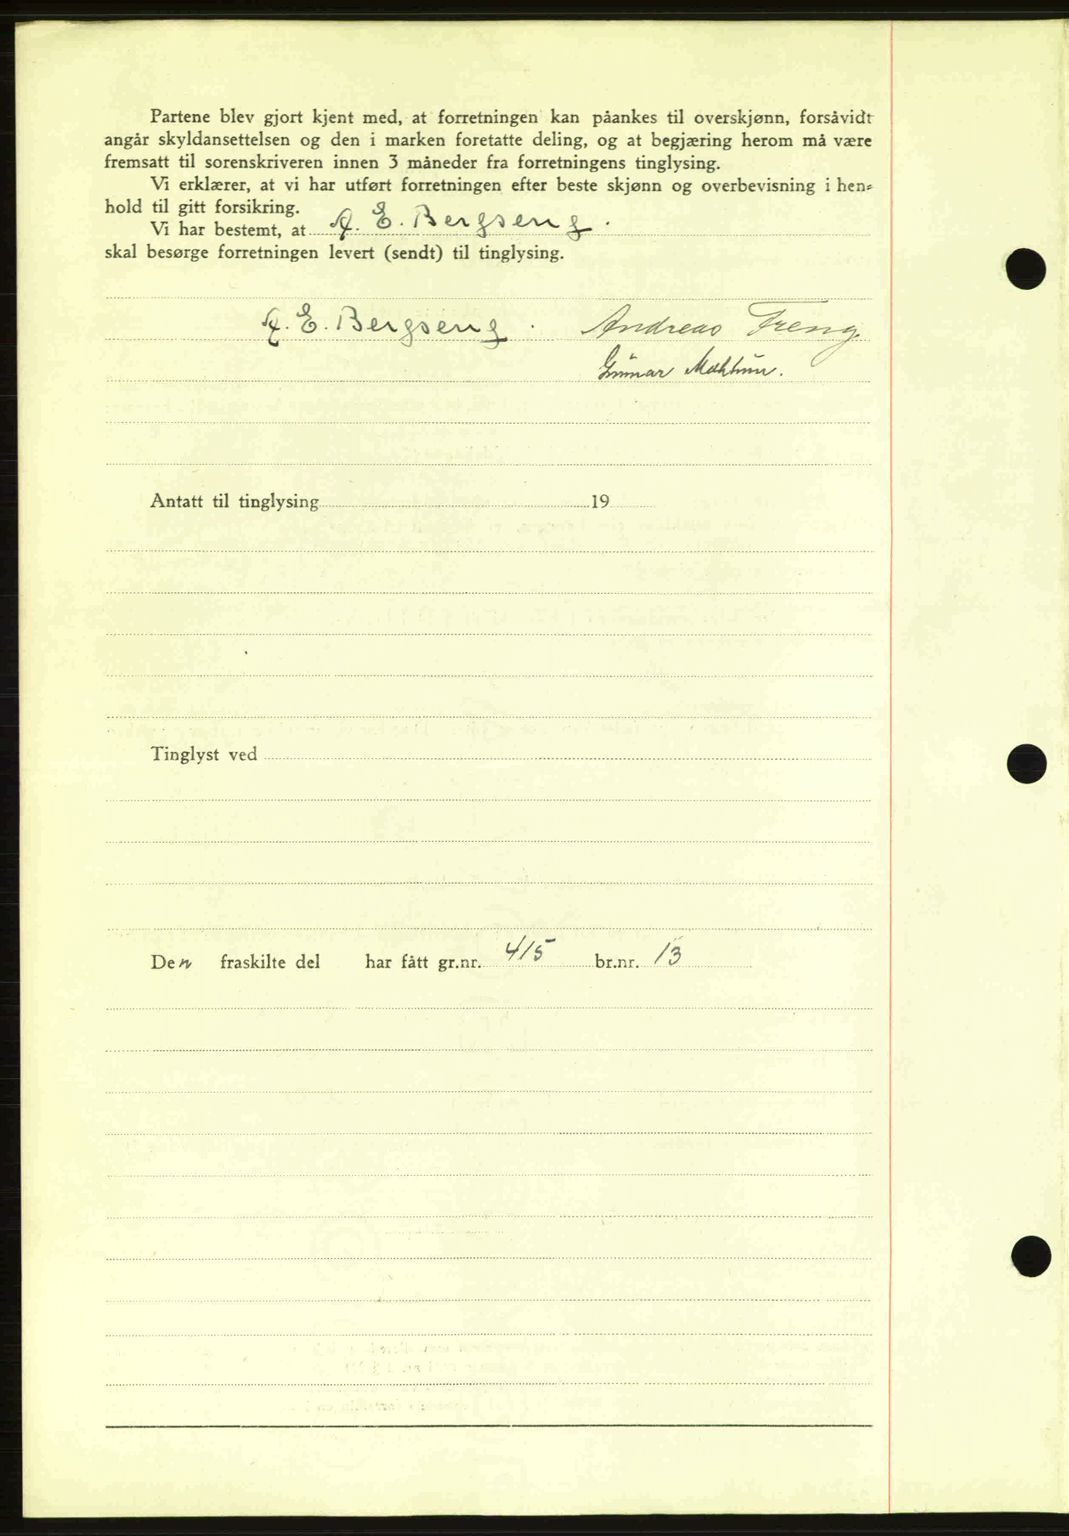 Partene blev gjort kjent med, at forretningen kan påankes til overskjønn, forsåvidt
angår skyldansettelsen og den i marken foretatte deling, og at begjæring herom må være
fremsatt til sorenskriveren innen 3 måneder fra forretningens tinglysing.
Vi erklærer, at vi har utført forretningen efter beste skjønn og overbevisning i hen-
hold til gitt forsikring.
Vi har bestemt, at A. E. Bergseng.
skal besørge forretningen levert (sendt) til tinglysing.
A. E. Bergseng. Andreas Freng
Gunnar
Antatt til tinglysing 19
Tinglyst ved
Den fraskilte del har fått gr.nr. 415 br.nr. 13